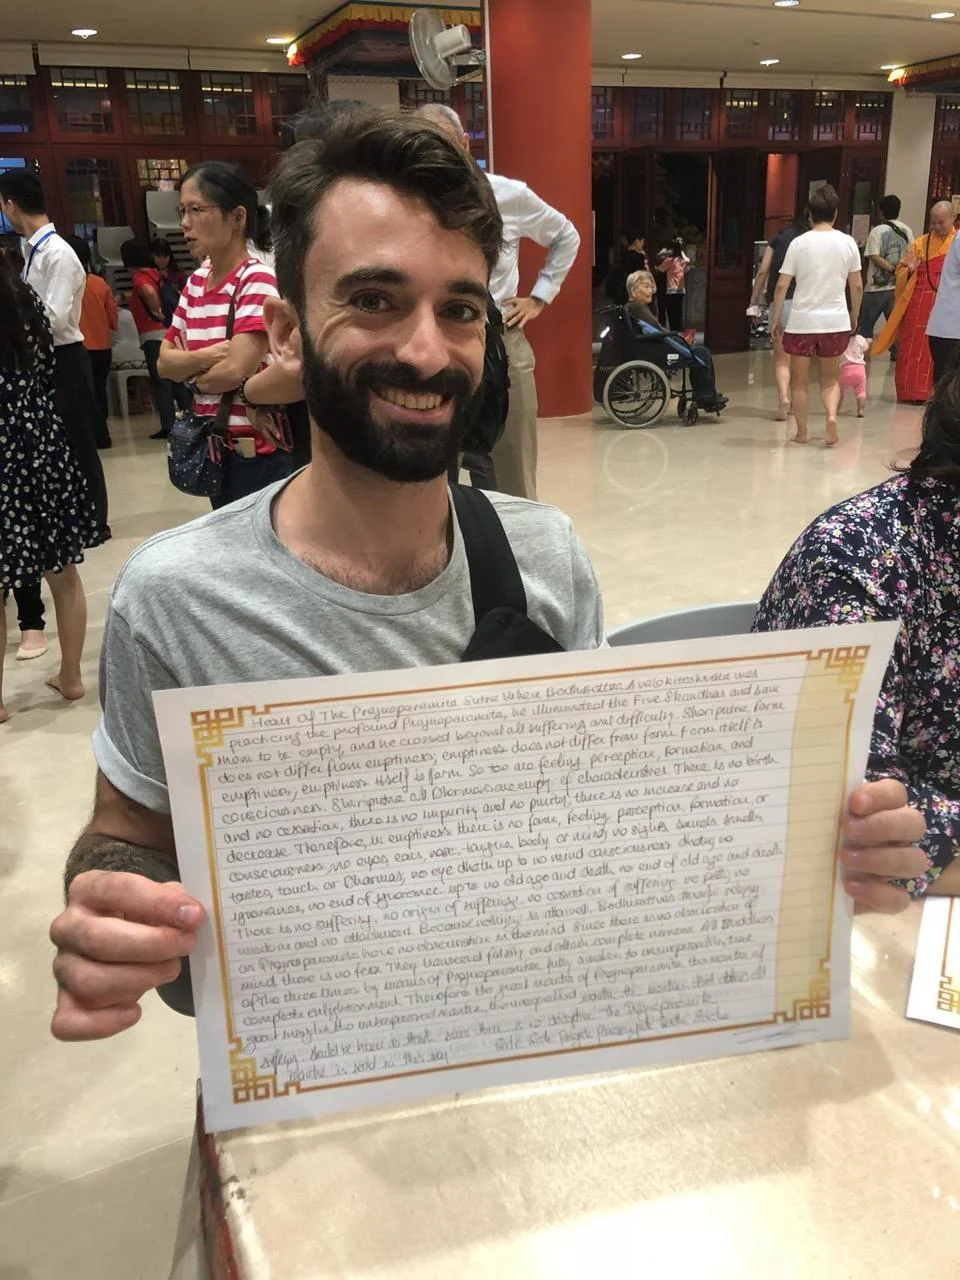 Heart Of The Prajnaparamita Sutra When Bodhisattva Avalokiteshvara was
practicing the profound Prajnaparamita, he illuminated the Five Skandhas and saw
them to be empty, and he crossed beyond all suffering and difficulty. Shariputra, form
does not differ from emptiness; emptiness does not differ from form. Form itself is
emptiness; emptiness itself is form. So too are feeling, perception, formation, and
consciousness. Shariputra all Dharmas are empty of characteristics. There is no birth
and no cessation, there is no impurity and no purity, there is no increase and no
decrease. Therefore, in emptiness there is no form, feeling, perception, formation, or
consciousness, no eyes, ears, nose, tongue, body or mind, no sights, sounds, smells,
tastes, touch or Dharmas, no eye dhatu up to no mind consciousness dhatu, no
ignorance, no end of ignorance, up to no old age and death, no end of old age and death.
There is no suffering, no origin of suffering, no cessation of suffering, no path, no
wisdom and no attainment. Because nothing is attained, Bodhisattvas through relying
on Prajnaparamita have no obscuration in the mind. Since there is no obscuration of
mind there is no fear. They transcend falsity and attain complete nirvana. All Buddhas
of the three times by means of Prajnaparamita fully awaken to unsurpassable, true
complete enlightenment. Therefore the great mantra of Prajnaparamita the mantra of
great insight, the unsurpassed mantra, the unequalled mantra, the mantra that all
suffering should be known as truth since there is no deception. The Prajnaparamita
mantra is said in this way Gate Gate